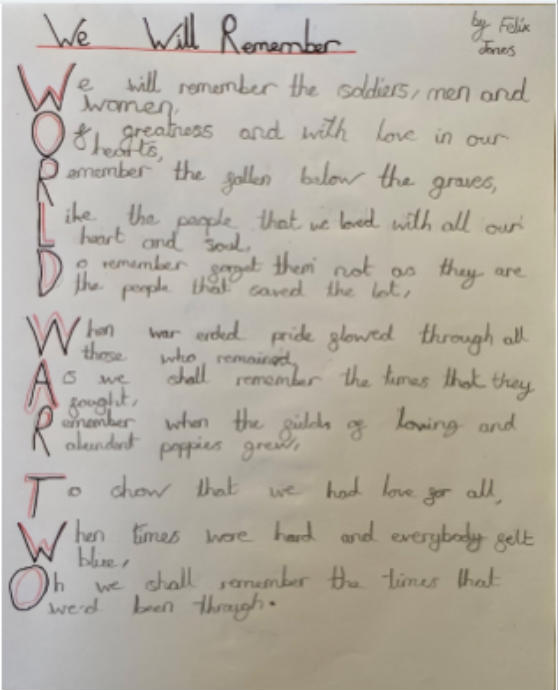 We Will Remember
by Felix
Jones
We will remember the soldiers, men and
women,
Of greatness and with love in our
hearts,
Remember the fallen below the graves,
Like the people that we loved with all our
heart and soul,
Do remember forget them not as they are
the people that saved the lot,
When war ended pride glowed through all
those who remained,
As we shall remember the times that they
fought,
Remember when the fields of loving and
abundant poppies grew,
To show that we had love for all,
When times were hard and everybody felt
blue,
Oh we shall remember the times that
we'd been through.